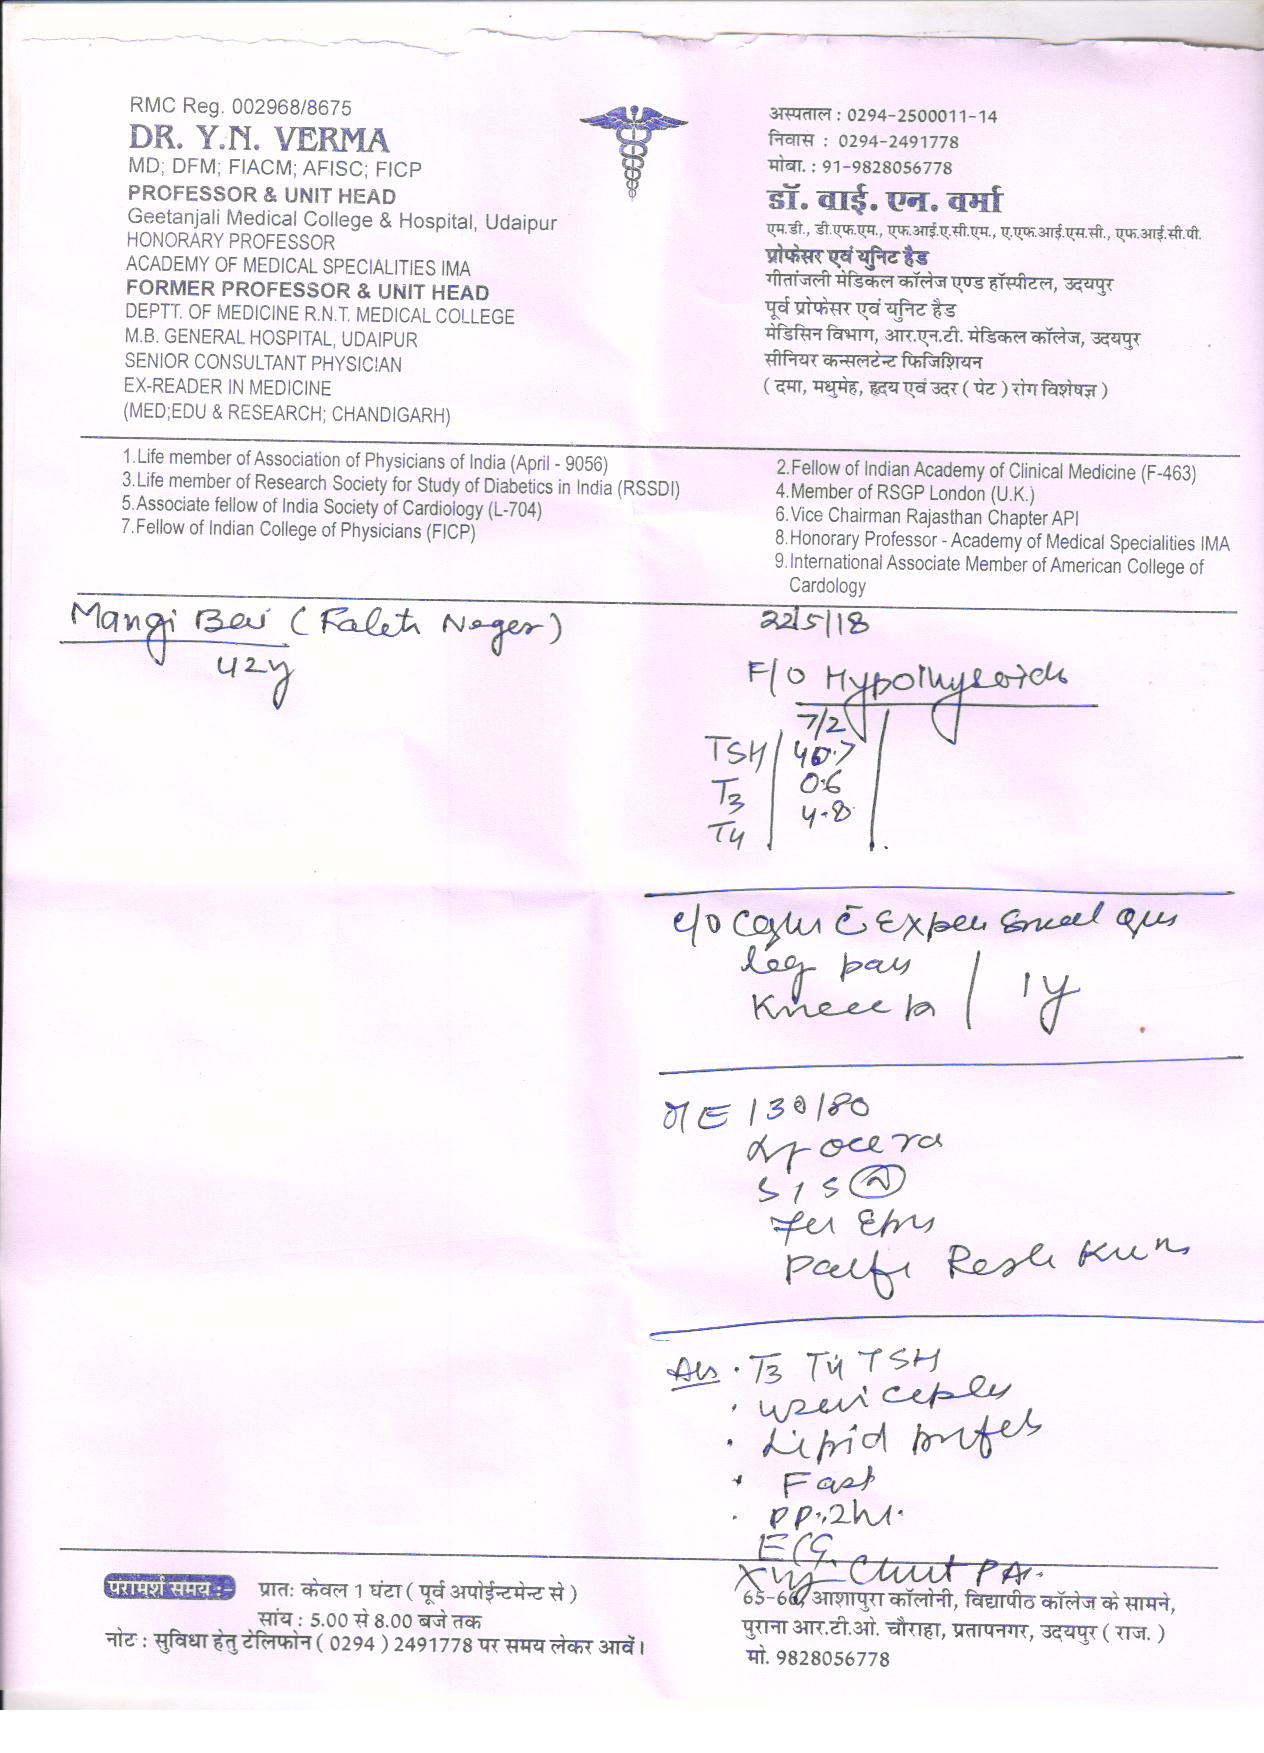 RMC Reg. 002968/8675
DR. Y.N. VERMA
MD; DFM; FIACM; AFISC; FICP
PROFESSOR & UNIT HEAD
Geetanjali Medical College & Hospital, Udaipur
HONORARY PROFESSOR
ACADEMY OF MEDICAL SPECIALITIES IMA
FORMER PROFESSOR & UNIT HEAD
DEPTT. OF MEDICINE R.N.T. MEDICAL COLLEGE
M.B. GENERAL HOSPITAL, UDAIPUR
SENIOR CONSULTANT PHYSICIAN
EX-READER IN MEDICINE
(MED;EDU & RESEARCH; CHANDIGARH)
अस्पताल : 0294-2500011-14
निवास : 0294-2491778
मोबा. : 91-9828056778
डॉ. वाई. एन. वर्मा
एम.डी., डी.एफ.एम., एफ.आई.ए.सी.एम., ए.एफ.आई.एस.सी., एफ.आई.सी.पी.
प्रोफेसर एवं युनिट हैड
गीतांजली मेडिकल कॉलेज एण्ड हॉस्पीटल, उदयपुर
पूर्व प्रोफेसर एवं यूनिट हैड
मेडिसिन विभाग, आर.एन.टी. मेडिकल कॉलेज, उदयपुर
सीनियर कन्सलटेन्ट फिजिशियन
( दमा, मधुमेह, हृदय एवं उदर ( पेट ) रोग विशेषज्ञ )
1.Life member of Association of Physicians of India (April - 9056)
3.Life member of Research Society for Study of Diabetics in India (RSSDI)
5.Associate fellow of India Society of Cardiology (L-704)
7.Fellow of Indian College of Physicians (FICP)
2.Fellow of Indian Academy of Clinical Medicine (F-463)
4.Member of RSGP London (U.K.)
6.Vice Chairman Rajasthan Chapter API
8.Honorary Professor - Academy of Medical Specialities IMA
9.International Associate Member of American College of
Cardology
Mangi Bai
42y
22/5/18
F/O
7/2
TSH
T3 0.6
T4 4.8
c/o
leg
Knee 1y
130/80
S1S
T3 T4 TSH
Lipid
Fast
PP 2hr.
ECG
Xray Chest PA
परामर्श समय :- प्रातः केवल 1 घंटा ( पूर्व अपोईन्टमेन्ट से )
सांय : 5.00 से 8.00 बजे तक
नोट : सुविधा हेतु टेलिफोन ( 0294 ) 2491778 पर समय लेकर आवें।
65-66, आशापुरा कॉलोनी, विद्यापीठ कॉलेज के सामने,
पुराना आर.टी.ओ. चौराहा, प्रतापनगर, उदयपुर ( राज. )
मो. 9828056778